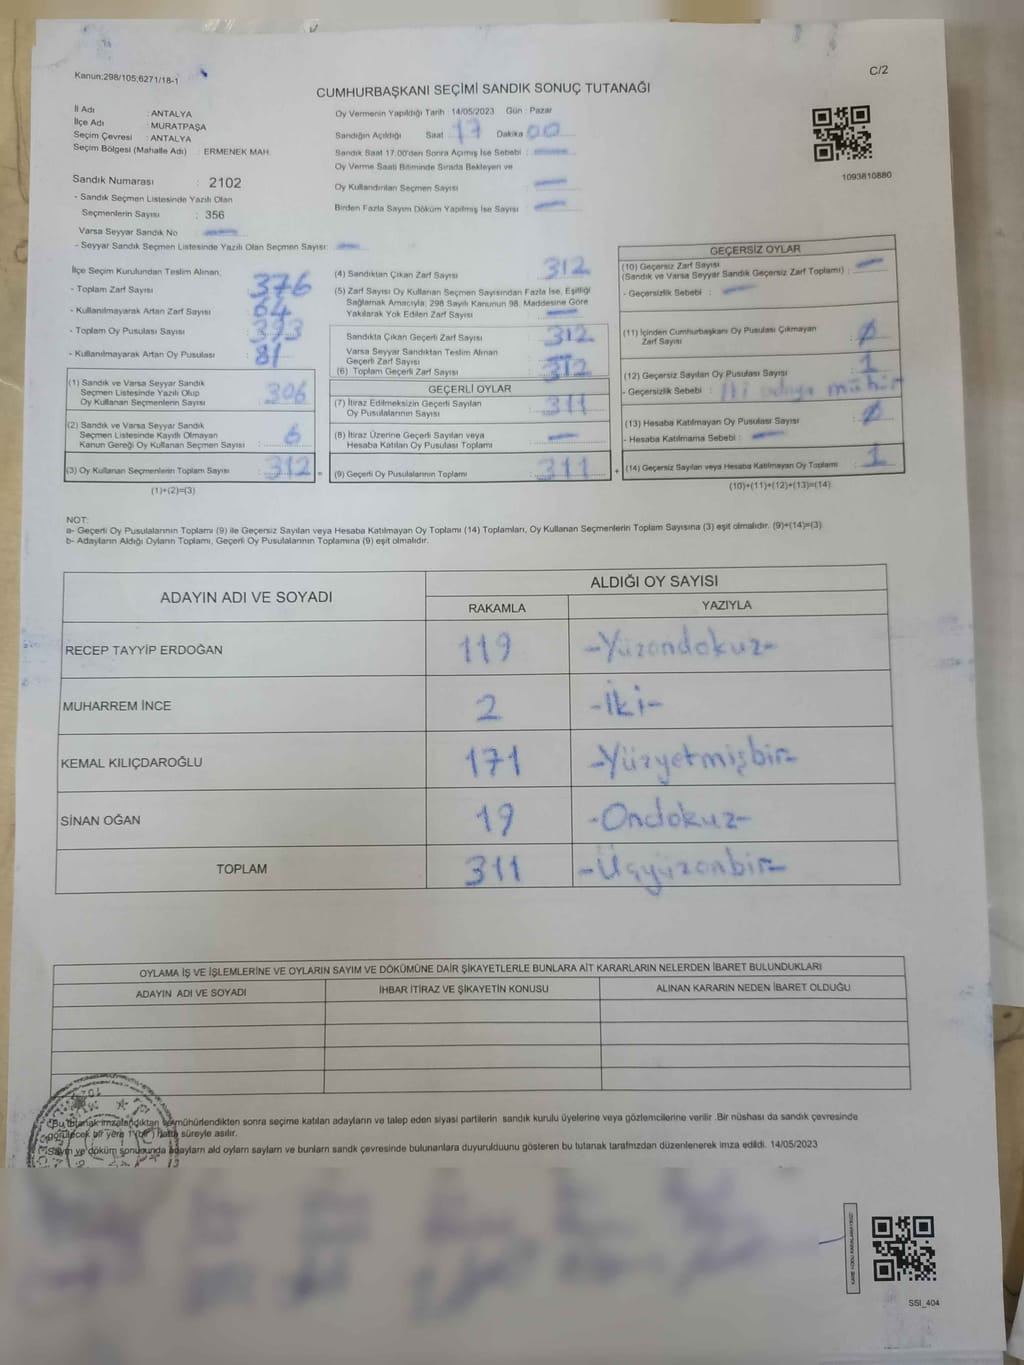 Kanun:298/105;6271/18-1
C/2
CUMHURBAŞKANI SEÇİMİ SANDIK SONUÇ TUTANAĞI
İl Adı : ANTALYA
İlçe Adı : MURATPAŞA
Seçim Çevresi : ANTALYA
Seçim Bölgesi (Mahalle Adı) : ERMENEK MAH.
Sandık Numarası : 2102
- Sandık Seçmen Listesinde Yazılı Olan
Seçmenlerin Sayısı : 356
Varsa Seyyar Sandık No
- Seyyar Sandık Seçmen Listesinde Yazılı Olan Seçmen Sayısı:
Oy Vermenin Yapıldığı Tarih : 14/05/2023 Gün : Pazar
Sandığın Açıldığı Saat : 17 Dakika 00
Sandık Saat 17.00'den Sonra Açımış İse Sebebi :
Oy Verme Saati Bitiminde Sırada Bekleyen ve
Oy Kullandırılan Seçmen Sayısı
Birden Fazla Sayım Döküm Yapılmış İse Sayısı :
1093810880
İlçe Seçim Kurulundan Teslim Alınan;
- Toplam Zarf Sayısı : 376
- Kullanılmayarak Artan Zarf Sayısı : 64
- Toplam Oy Pusulası Sayısı : 393
- Kullanılmayarak Artan Oy Pusulası : 81
(1) Sandık ve Varsa Seyyar Sandık
Seçmen Listesinde Yazılı Olup
Oy Kullanan Seçmenlerin Sayısı : 306
(2) Sandık ve Varsa Seyyar Sandık
Seçmen Listesinde Kayıtlı Olmayan
Kanun Gereği Oy Kullanan Seçmen Sayısı : 6
(3) Oy Kullanan Seçmenlerin Toplam Sayısı : 312 =
(1)+(2)=(3)
(4) Sandıktan Çıkan Zarf Sayısı : 312
(5) Zarf Sayısı Oy Kullanan Seçmen Sayısından Fazla İse, Eşitliği
Sağlamak Amacıyla; 298 Sayılı Kanunun 98. Maddesine Göre
Yakılarak Yok Edilen Zarf Sayısı :
Sandıkta Çıkan Geçerli Zarf Sayısı : 312
Varsa Seyyar Sandıktan Teslim Alınan
Geçerli Zarf Sayısı :
(6) Toplam Geçerli Zarf Sayısı : 312
GEÇERLİ OYLAR
(7) İtiraz Edilmeksizin Geçerli Sayılan
Oy Pusulalarının Sayısı : 311
(8) İtiraz Üzerine Geçerli Sayılan veya
Hesaba Katılan Oy Pusulası Toplamı :
(9) Geçerli Oy Pusulalarının Toplamı : 311 +
GEÇERSİZ OYLAR
(10) Geçersiz Zarf Sayısı
(Sandık ve Varsa Seyyar Sandık Geçersiz Zarf Toplamı) :
- Geçersizlik Sebebi :
(11) İçinden Cumhurbaşkanı Oy Pusulası Çıkmayan
Zarf Sayısı : 0
(12) Geçersiz Sayılan Oy Pusulası Sayısı : 1
- Geçersizlik Sebebi : İki adaya mühür
(13) Hesaba Katılmayan Oy Pusulası Sayısı : 0
- Hesaba Katılmama Sebebi :
(14) Geçersiz Sayılan veya Hesaba Katılmayan Oy Toplamı : 1
(10)+(11)+(12)+(13)=(14)
NOT:
a- Geçerli Oy Pusulalarının Toplamı (9) ile Geçersiz Sayılan veya Hesaba Katılmayan Oy Toplamı (14) Toplamları, Oy Kullanan Seçmenlerin Toplam Sayısına (3) eşit olmalıdır. (9)+(14)=(3)
b- Adayların Aldığı Oyların Toplamı, Geçerli Oy Pusulalarının Toplamına (9) eşit olmalıdır.
ADAYIN ADI VE SOYADI
ALDIĞI OY SAYISI
RAKAMLA
YAZIYLA
RECEP TAYYİP ERDOĞAN 119 -Yüzondokuz-
MUHARREM İNCE 2 -İki-
KEMAL KILIÇDAROĞLU 171 -Yüzyetmişbir-
SİNAN OĞAN 19 -Ondokuz-
TOPLAM 311 -Üçyüzonbir-
OYLAMA İŞ VE İŞLEMLERİNE VE OYLARIN SAYIM VE DÖKÜMÜNE DAİR ŞİKAYETLERLE BUNLARA AİT KARARLARIN NELERDEN İBARET BULUNDUKLARI
ADAYIN ADI VE SOYADI
İHBAR İTİRAZ VE ŞİKAYETİN KONUSU
ALINAN KARARIN NEDEN İBARET OLDUĞU
"Bu tutanak imzalandıktan ve mühürlendikten sonra seçime katılan adayların ve talep eden siyasi partilerin sandık kurulu üyelerine veya gözlemcilerine verilir .Bir nüshası da sandık çevresinde
görülecek bir yere 1 (bir) hafta süreyle asılır.
Sayım ve döküm sonucunda adayların ald oylarn saylarn ve bunlarn sandk çevresinde bulunanlara duyurulduunu gösteren bu tutanak tarafmzdan düzenlenerek imza edildi. 14/05/2023
SSI_404